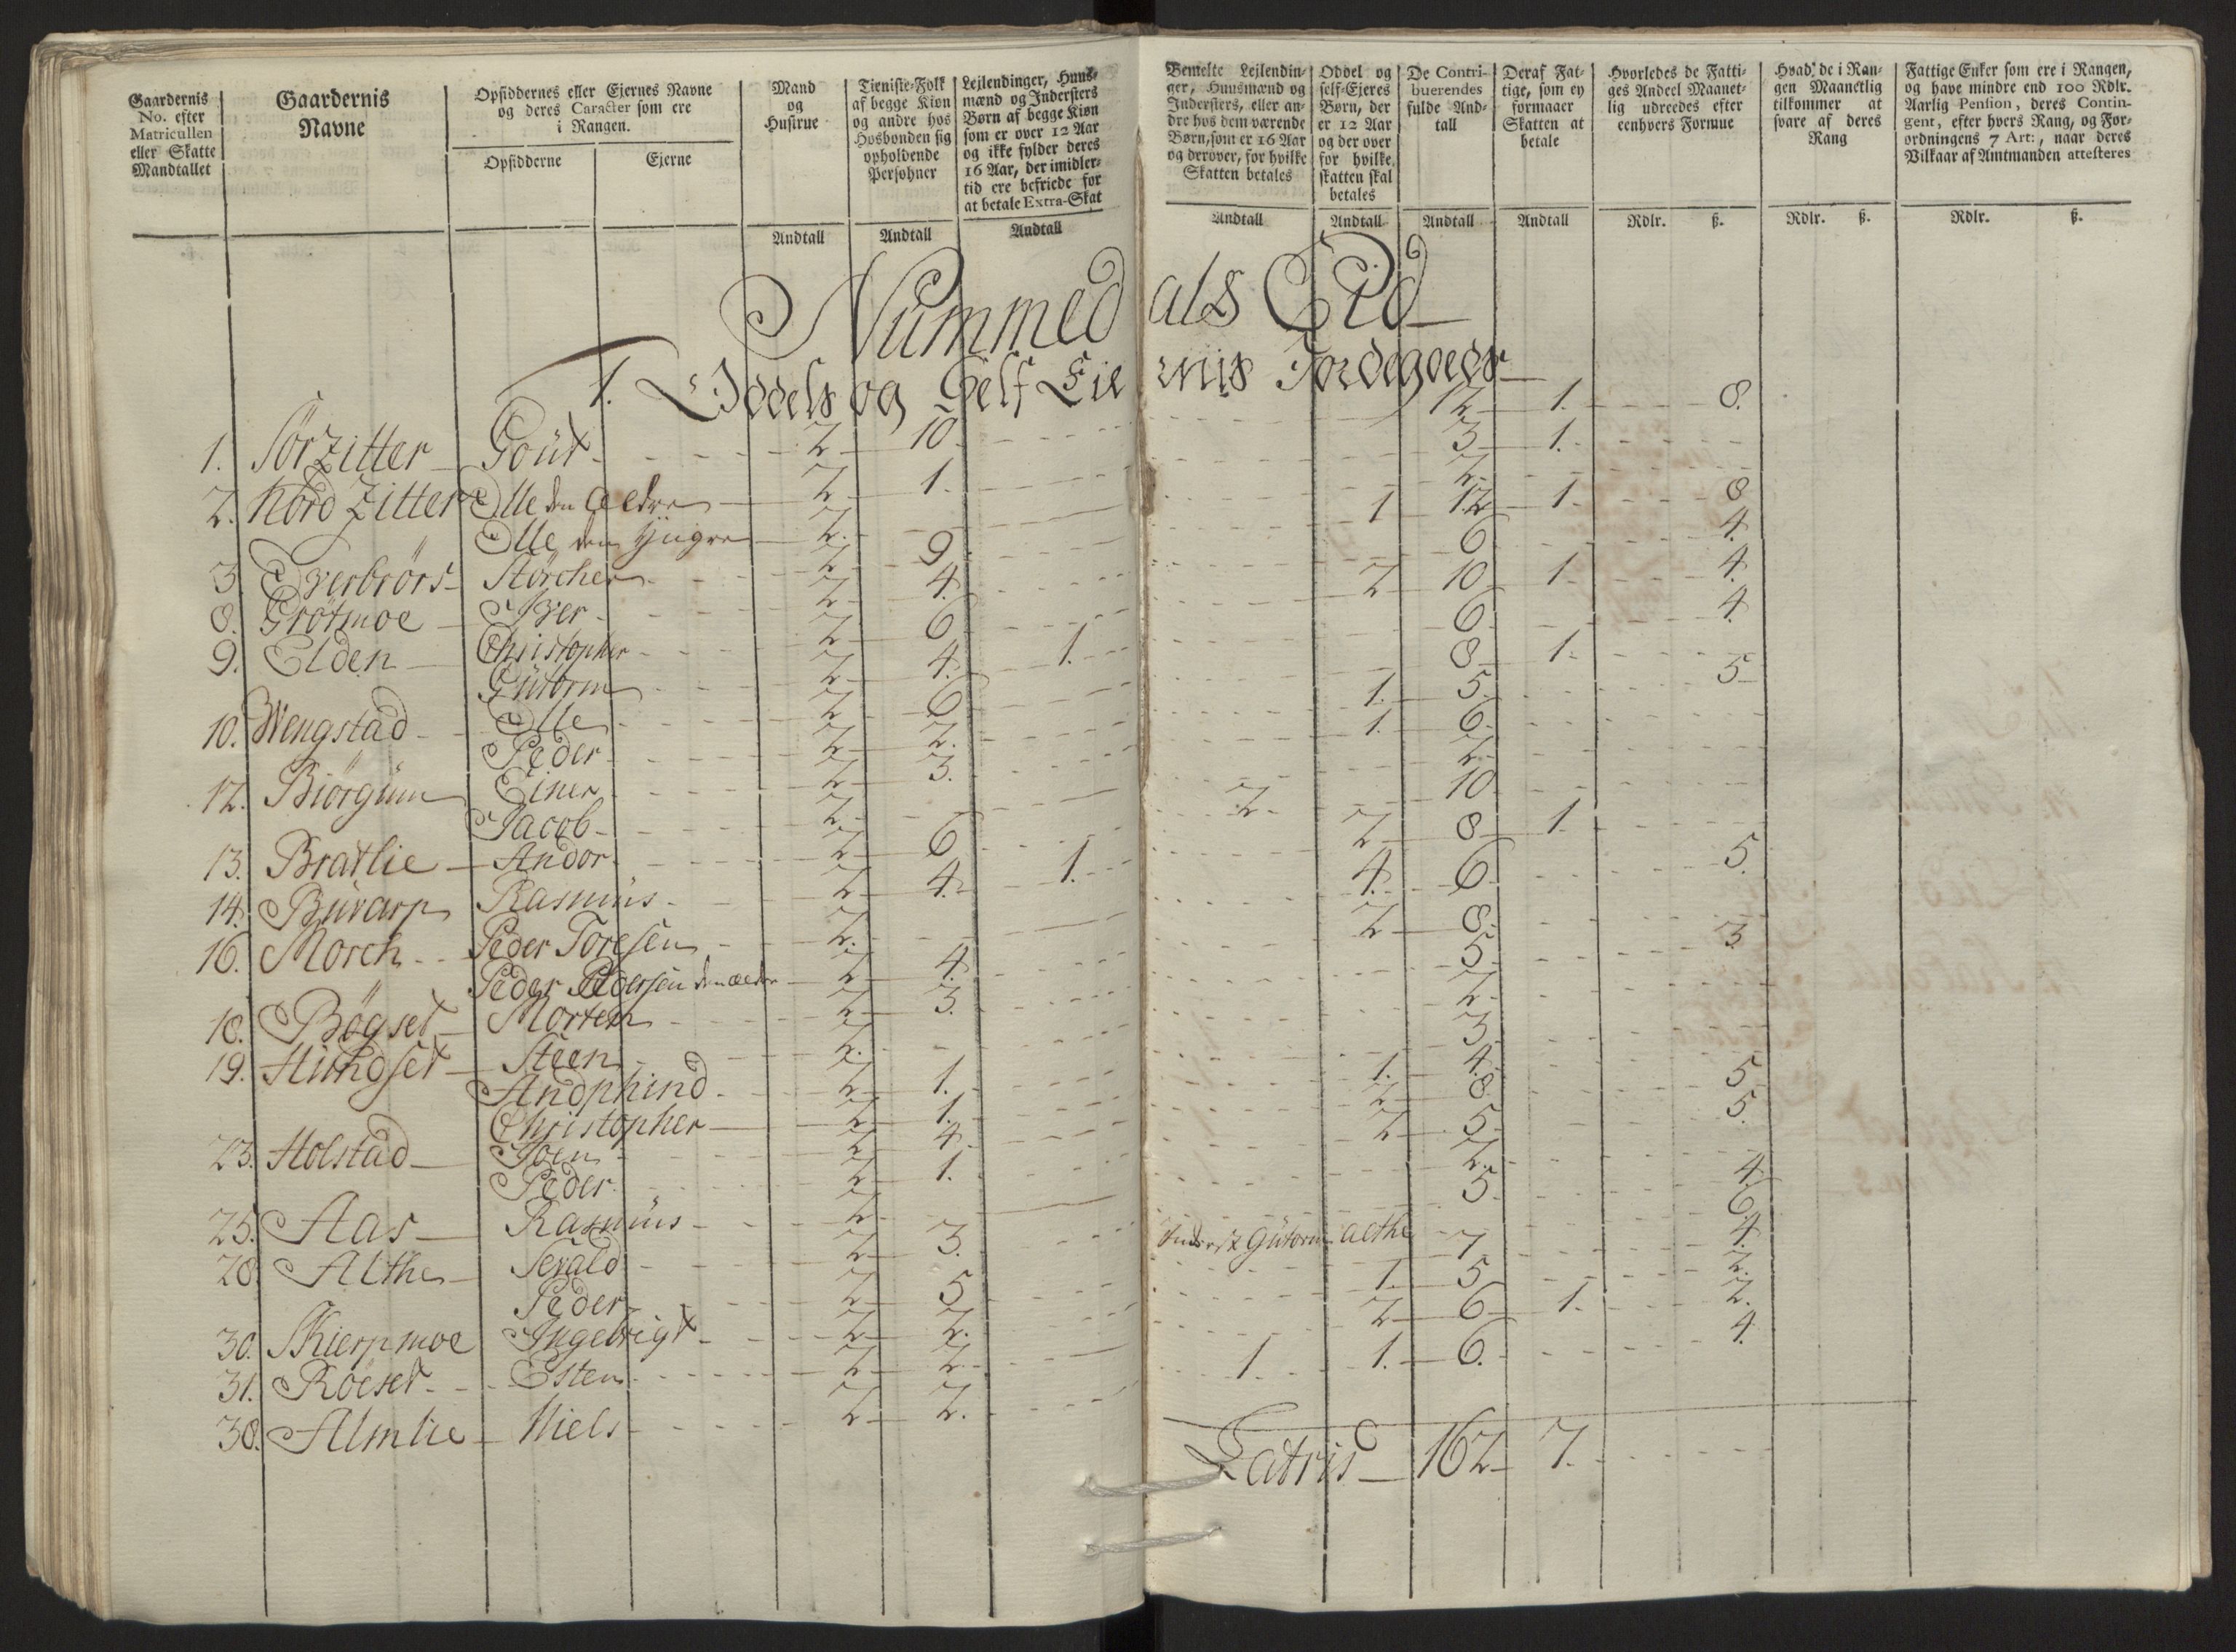 Gaardernis No. efter Matricullen eller Skatte Mandtallet
Gaardernis Navne
Opsiddernes eller Ejernes Navne og deres Caracter som ere i Rangen.
Opsidderne
Ejerne
Mand og Hustrue
Tieniste-Folk af begge Kiøn og andre hos Hosbonden sig opholdende Persohner
Lejlendinger, Huusmænd og Indersters Børn af begge Kiøn som er over 12 Aar og ikke fylder deres 16 Aar, der imidlertid ere befriede for at betale Extra-Skat
Bemelte Lejlendinger, Huusmænd og Indersters, eller andre hos dem værende Børn, som er 16 Aar og derover, for hvilke Skatten betales
Oddel og self-Ejeres Børn, der er 12 Aar og der over for hvilke skatten skal betales
De Contribuerendes fulde Andtall
Deraf Fattige, som ey formaaer Skatten at betale
Hvorledes de Fattiges Andeel Maanetlig udreedes efter eenhvers Formue
Hvad de i Rangen Maanetlig tilkommer at svare af deres Rang
Fattige Enker som ere i Rangen, og have mindre end 100 Rdlr. Aarlig Pension, deres Contingent, efter hvers Rang, og Forordningens 7 Art:, naar deres Vilkaar af Amtmanden attesteres
Andtall Andtall Andtall Andtall Andtall Andtall Andtall Rdlr. ß. Rdlr. ß. Rdlr. ß.
Nummedals Eid
1. Oddels og Self Eiernis Jordegoeds
1. Sör Zitter Goüt 2 10 12 1. 8.
2. Nord Zitter Olle den Aeldre 2 1. 3 1.
Olle den Yngre 2. 2
3 Overbrörs Störcher 2 9 1 12 1. 8
8. Grötmoe Iver 2 4. 6 4.
9. Elden Christopher 2 6 2 10 1 4.
Guttorm 2 4. 1. 6 4
10. Wengstad Olle 2 6 8 1.
Peder 2 2. 1. 5 5
12. Biörgüm Einer 2 3. 1. 6
Jacob 2. 2
13. Bratlie Andor 2 6 2 10
14. Büvarp Rasmüs 2 4. 1. 2 8 1
16. Morch Peder Toresen 2. 4. 6 5.
Peder Pedersen den aeldre 2 4. 2 8
18. Bögset Morten 2 3. 5 3
19. Hündset Steen 2. 2
Andphind 2 1. 3
Christopher 2 1. 1. 4.
23. Holstad Joen 2 4. 2 8 5
Peder 2 1. 2 5 5.
25. Aas Rasmüs 2 2.
28. Althe Sevald 2 3. 5 4.
Peder 2 5 Inderst Gütorm Althe 7 6
30. Skierpmoe Ingebrigt 2 2. 1. 5 4.
31. Röeset Esten 2 2 2 6 1. 2.
38. Almlie Niels 2 2. 1 1. 6. 2.
4.
Latris 162 7.